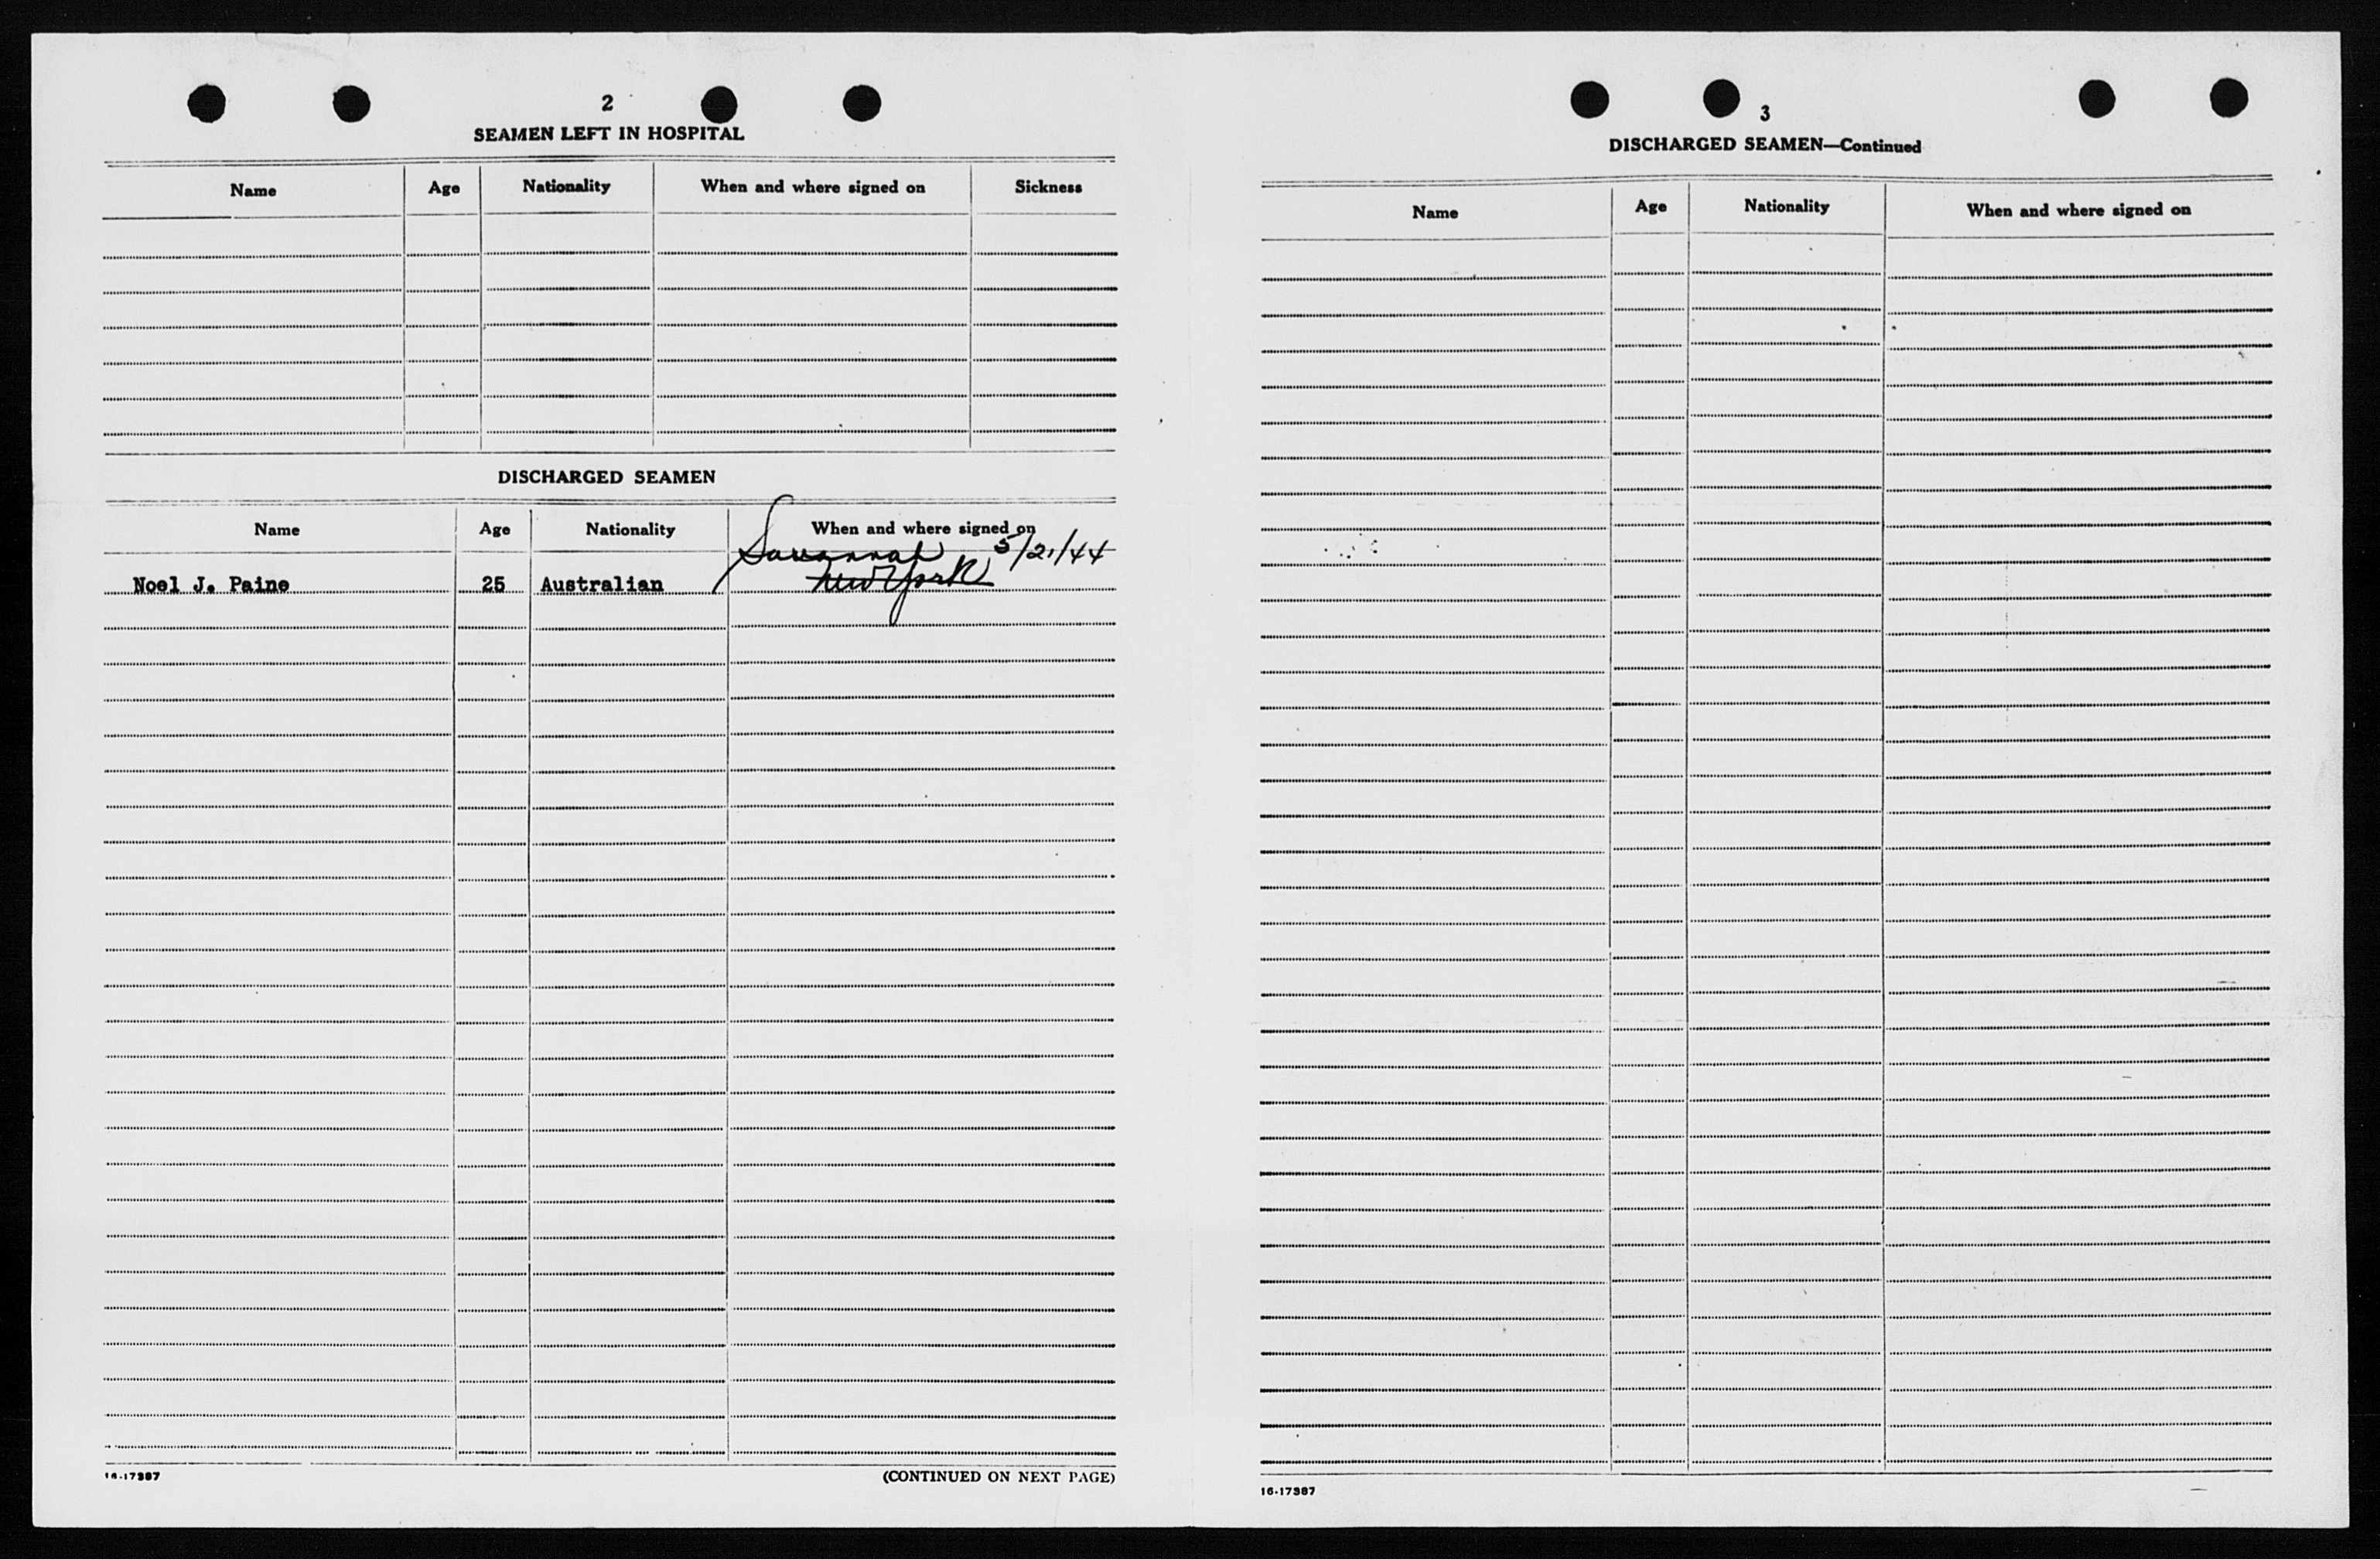 2
SEAMEN LEFT IN HOSPITAL
Name Age Nationality When and where signed on Sickness
DISCHARGED SEAMEN
Name Age Nationality When and where signed on
Savannah 5/21/44
Noel J. Paine 25 Australian New York
16-17387
(CONTINUED ON NEXT PAGE)
3
DISCHARGED SEAMEN—Continued
Name Age Nationality When and where signed on
16-17387